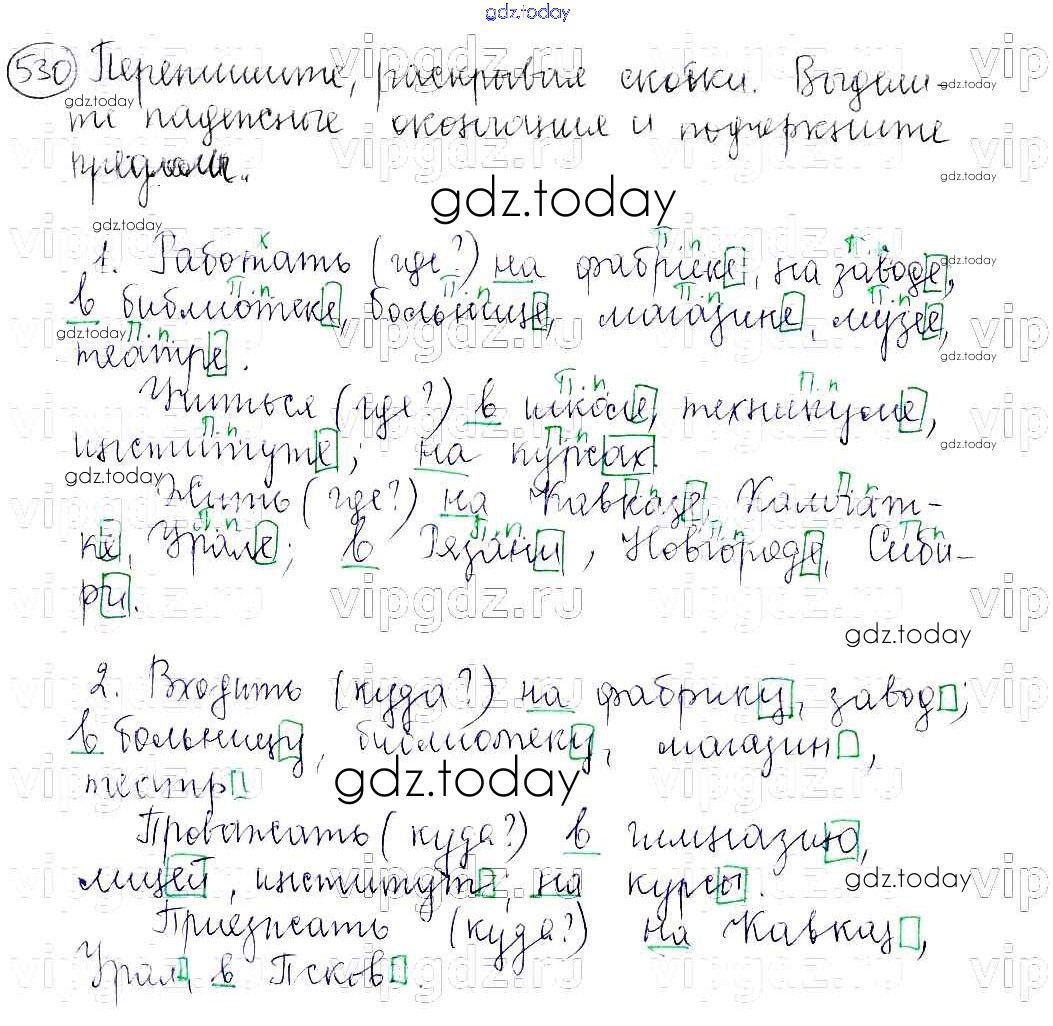 gdz.today
530 Перепишите, раскрывая скобки. Выдели-
те падежные окончания и подчеркните
предлоги.
1. Работать (где?) на фабрике, на заводе,
в библиотеке, больнице, магазине, музее,
театре.
Учиться (где?) в школе, техникуме,
институте; на курсах.
Жить (где?) на Кавказе, Камчат-
ке, Урале; в Рязани, Новгороде, Сиби-
ри.
2. Входить (куда?) на фабрику, завод;
в больницу, библиотеку, магазин,
театр
Провожать (куда?) в гимназию,
лицей, институт, на курсы.
Приезжать (куда?) на Кавказ,
Урал, в Псков.